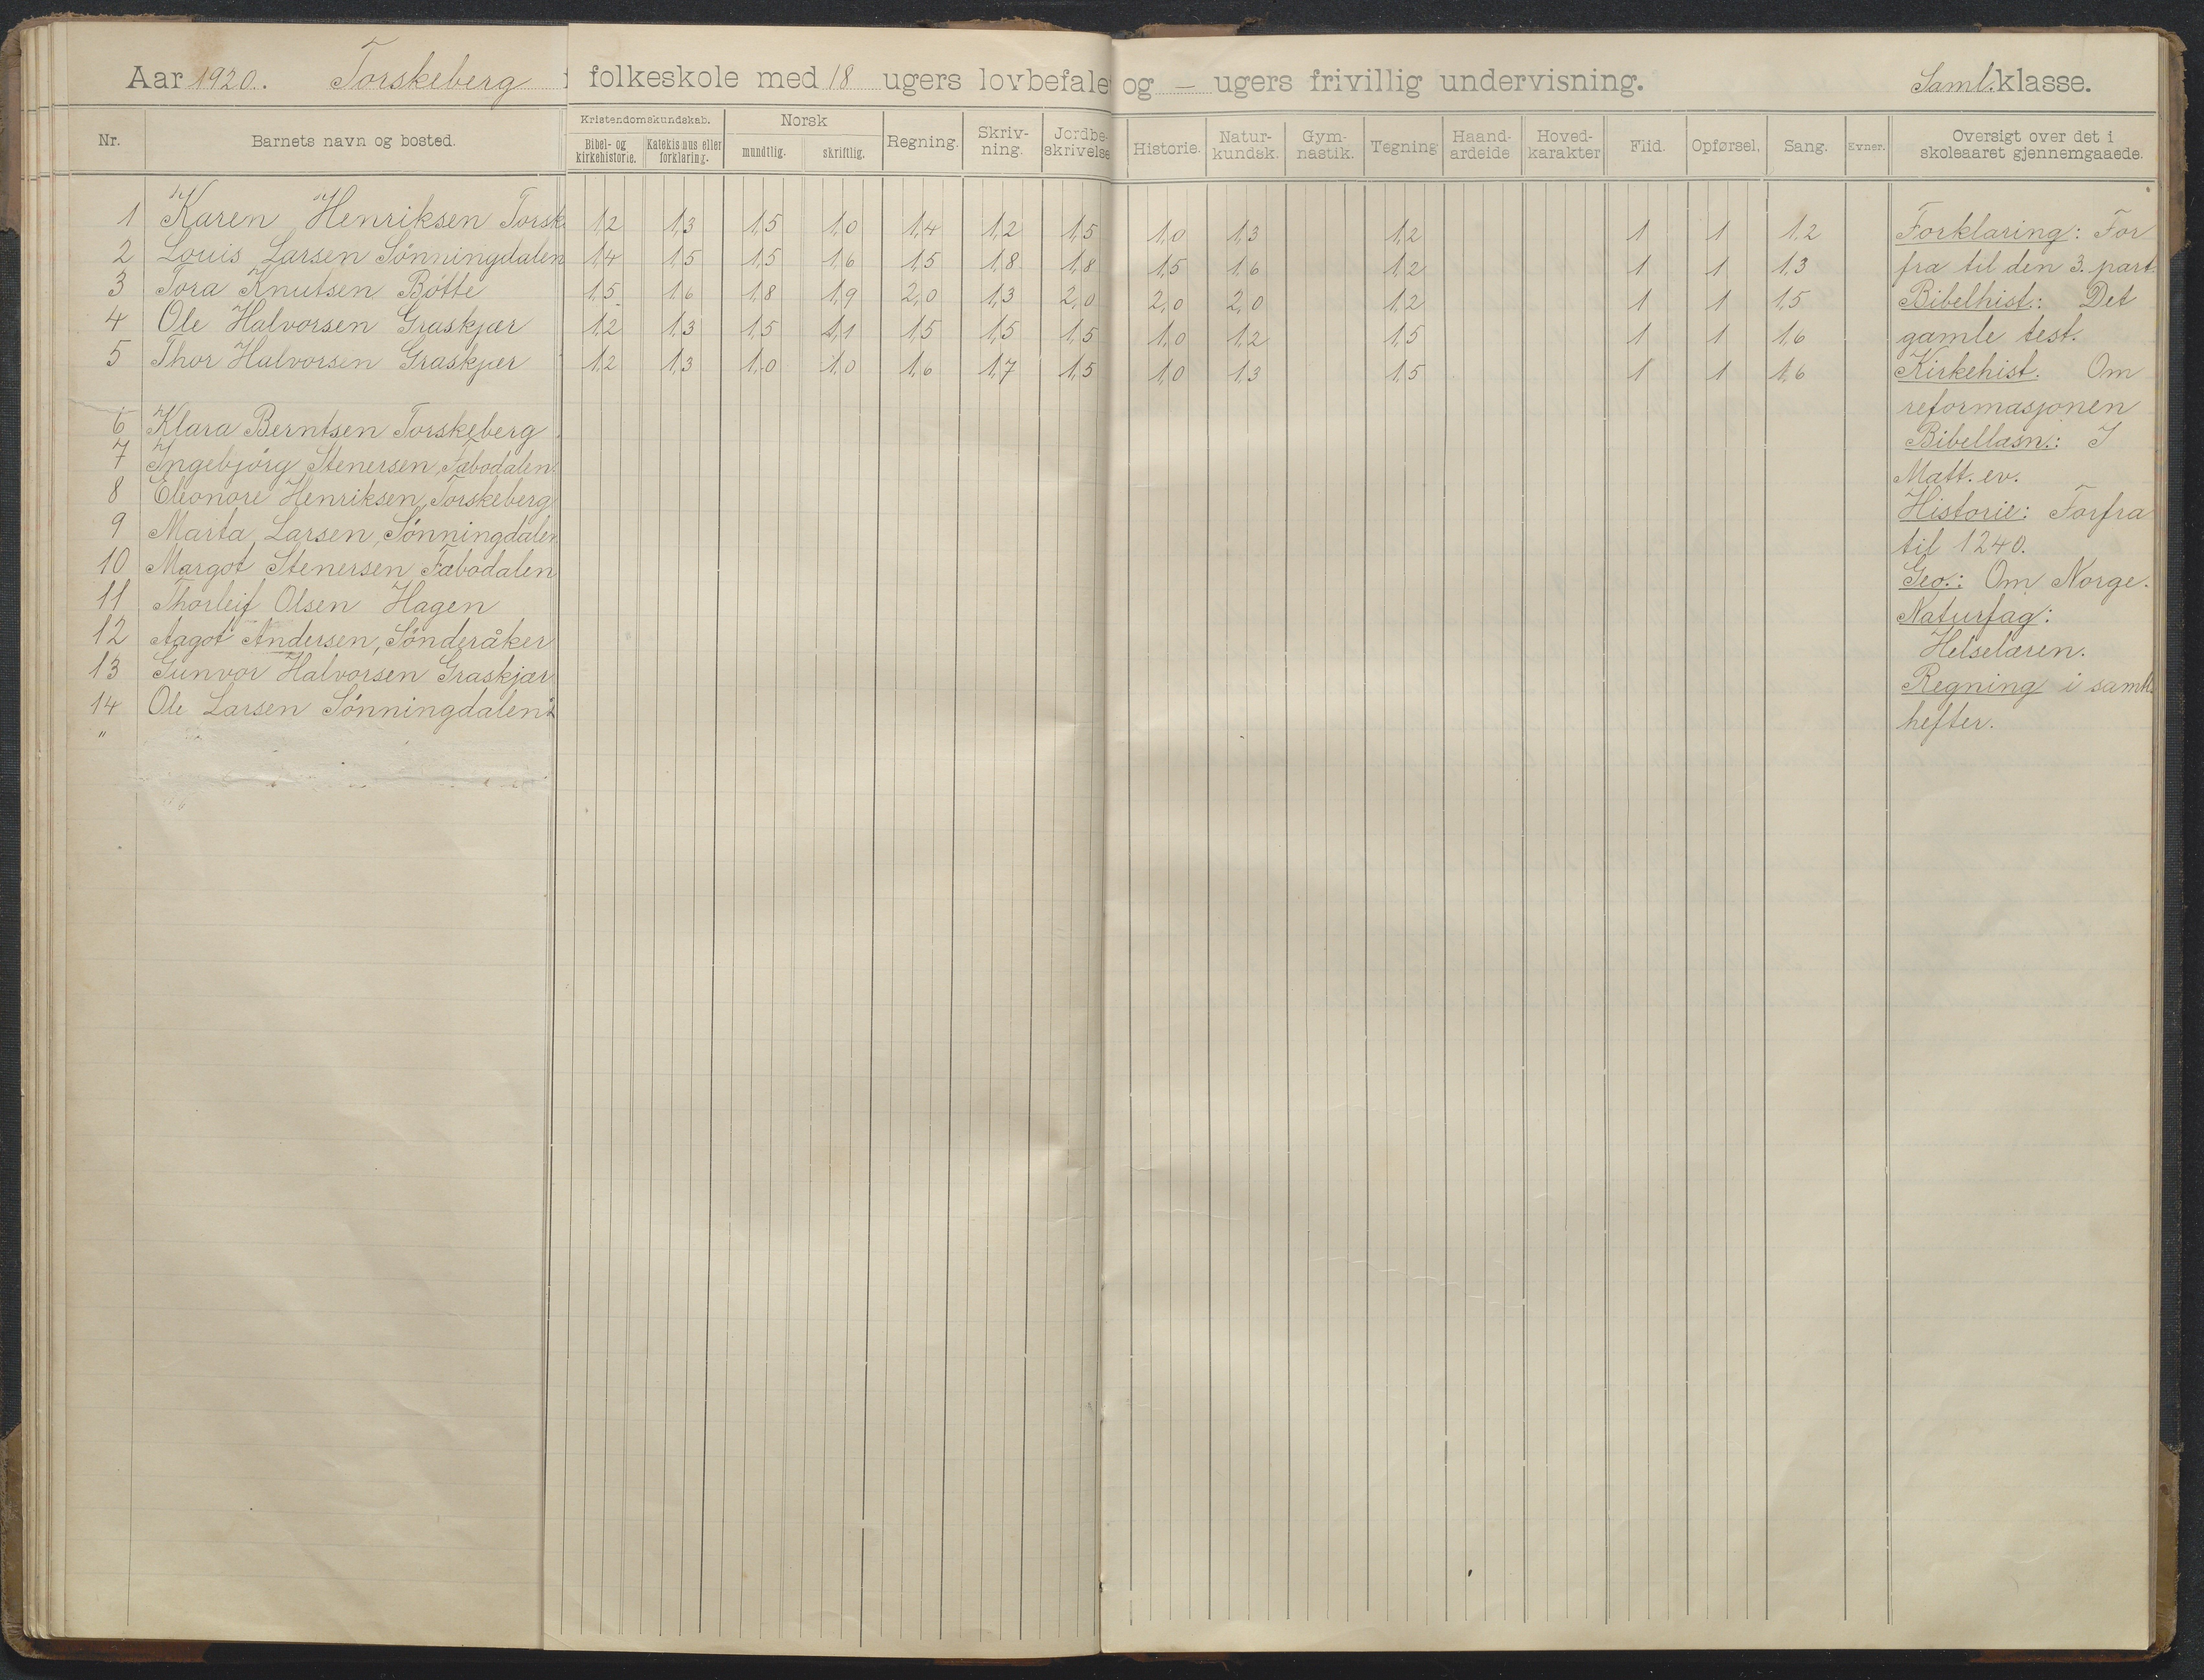 Aar 1920. Torskeberg folkeskole med 18 ugers lovbefale og – ugers frivillig undervisning. Saml. klasse.
Nr. Barnets navn og bosted. Kristendomskundskab. Bibel- og kirkehistorie. Katekismus eller forklaring. Norsk mundtlig. skriftlig. Regning. Skriv-ning. Jordbe-skrivelse Historie. Natur-kundsk. Gym-nastik. Tegning Haand-arbeide Hoved-karakter Flid. Opførsel. Sang. Evner. Oversigt over det i skoleaaret gjennemgaaede.
1 Karen Henriksen Torsk 1,2 1,3 1,5 1,0 1,4 1,2 1,5 1,0 1,3 1,2 1 1 1,2
2 Louis Larsen Sønningdalen 1,4 1,5 1,5 1,6 1,5 1,8 1,8 1,5 1,6 1,2 1 1 1,3
3 Tora Knutsen Bøtte 1,5 1,6 1,8 1,9 2,0 1,3 2,0 2,0 2,0 1,2 1 1 1,5
4 Ole Halvorsen Graskjær 1,2 1,3 1,5 2,1 1,5 1,5 1,5 1,0 1,2 1,5 1 1 1,6
5 Thor Halvorsen Graskjær 1,2 1,3 1,0 1,0 1,6 1,7 1,5 1,0 1,3 1,5 1 1 1,6
6 Klara Berntsen Torskeberg
7 Ingebjörg Stenersen, Fæbodalen
8 Eleonore Henriksen, Torskeberg
9 Marta Larsen, Sønningdalen
10 Margot Stenersen Fæbodalen
11 Thorleif Olsen Hagen
12 Aagot Andersen, Sønderåker
13 Gunvor Halvorsen Graskjær
14 Ole Larsen Sønningdalen
"
Forklaring: For
fra til den 3. part.
Bibelhist.: Det
gamle test.
Kirkehist. Om
reformasjonen
Bibellæsn.: I
Matt. ev.
Historie: Forfra
til 1240.
Geo.: Om Norge.
Naturfag:
Helselæren.
Regning i samk.
hefter.